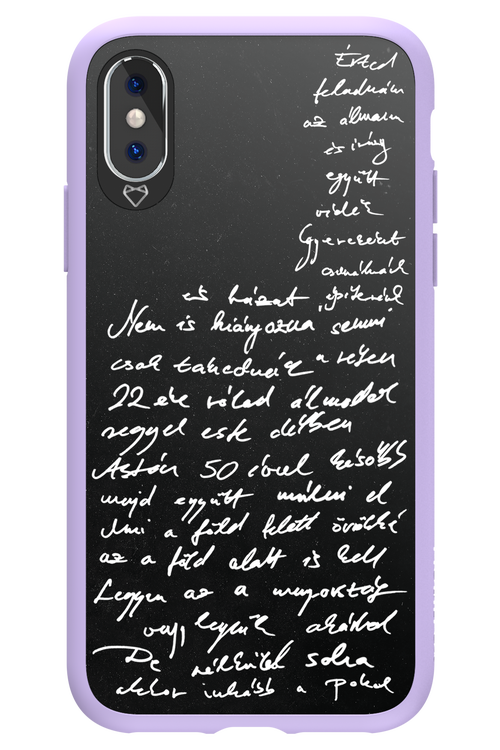 Érted
feladnám
az álmaim
és így
együtt
vidék
Gyerekeket
csinálnánk
és házat építenénk
Nem is hiányozna semmi
csak takednék a vélem
22 éve rólad álmodok
reggel este délben
Aztán 50 évvel később
majd együtt múlni el
Ami a föld felett örökké
az a föld alatt is kell
Legyen az a mennyország
vagy legyünk akárhol
De nélküled soha
akkor inkább a Pokol